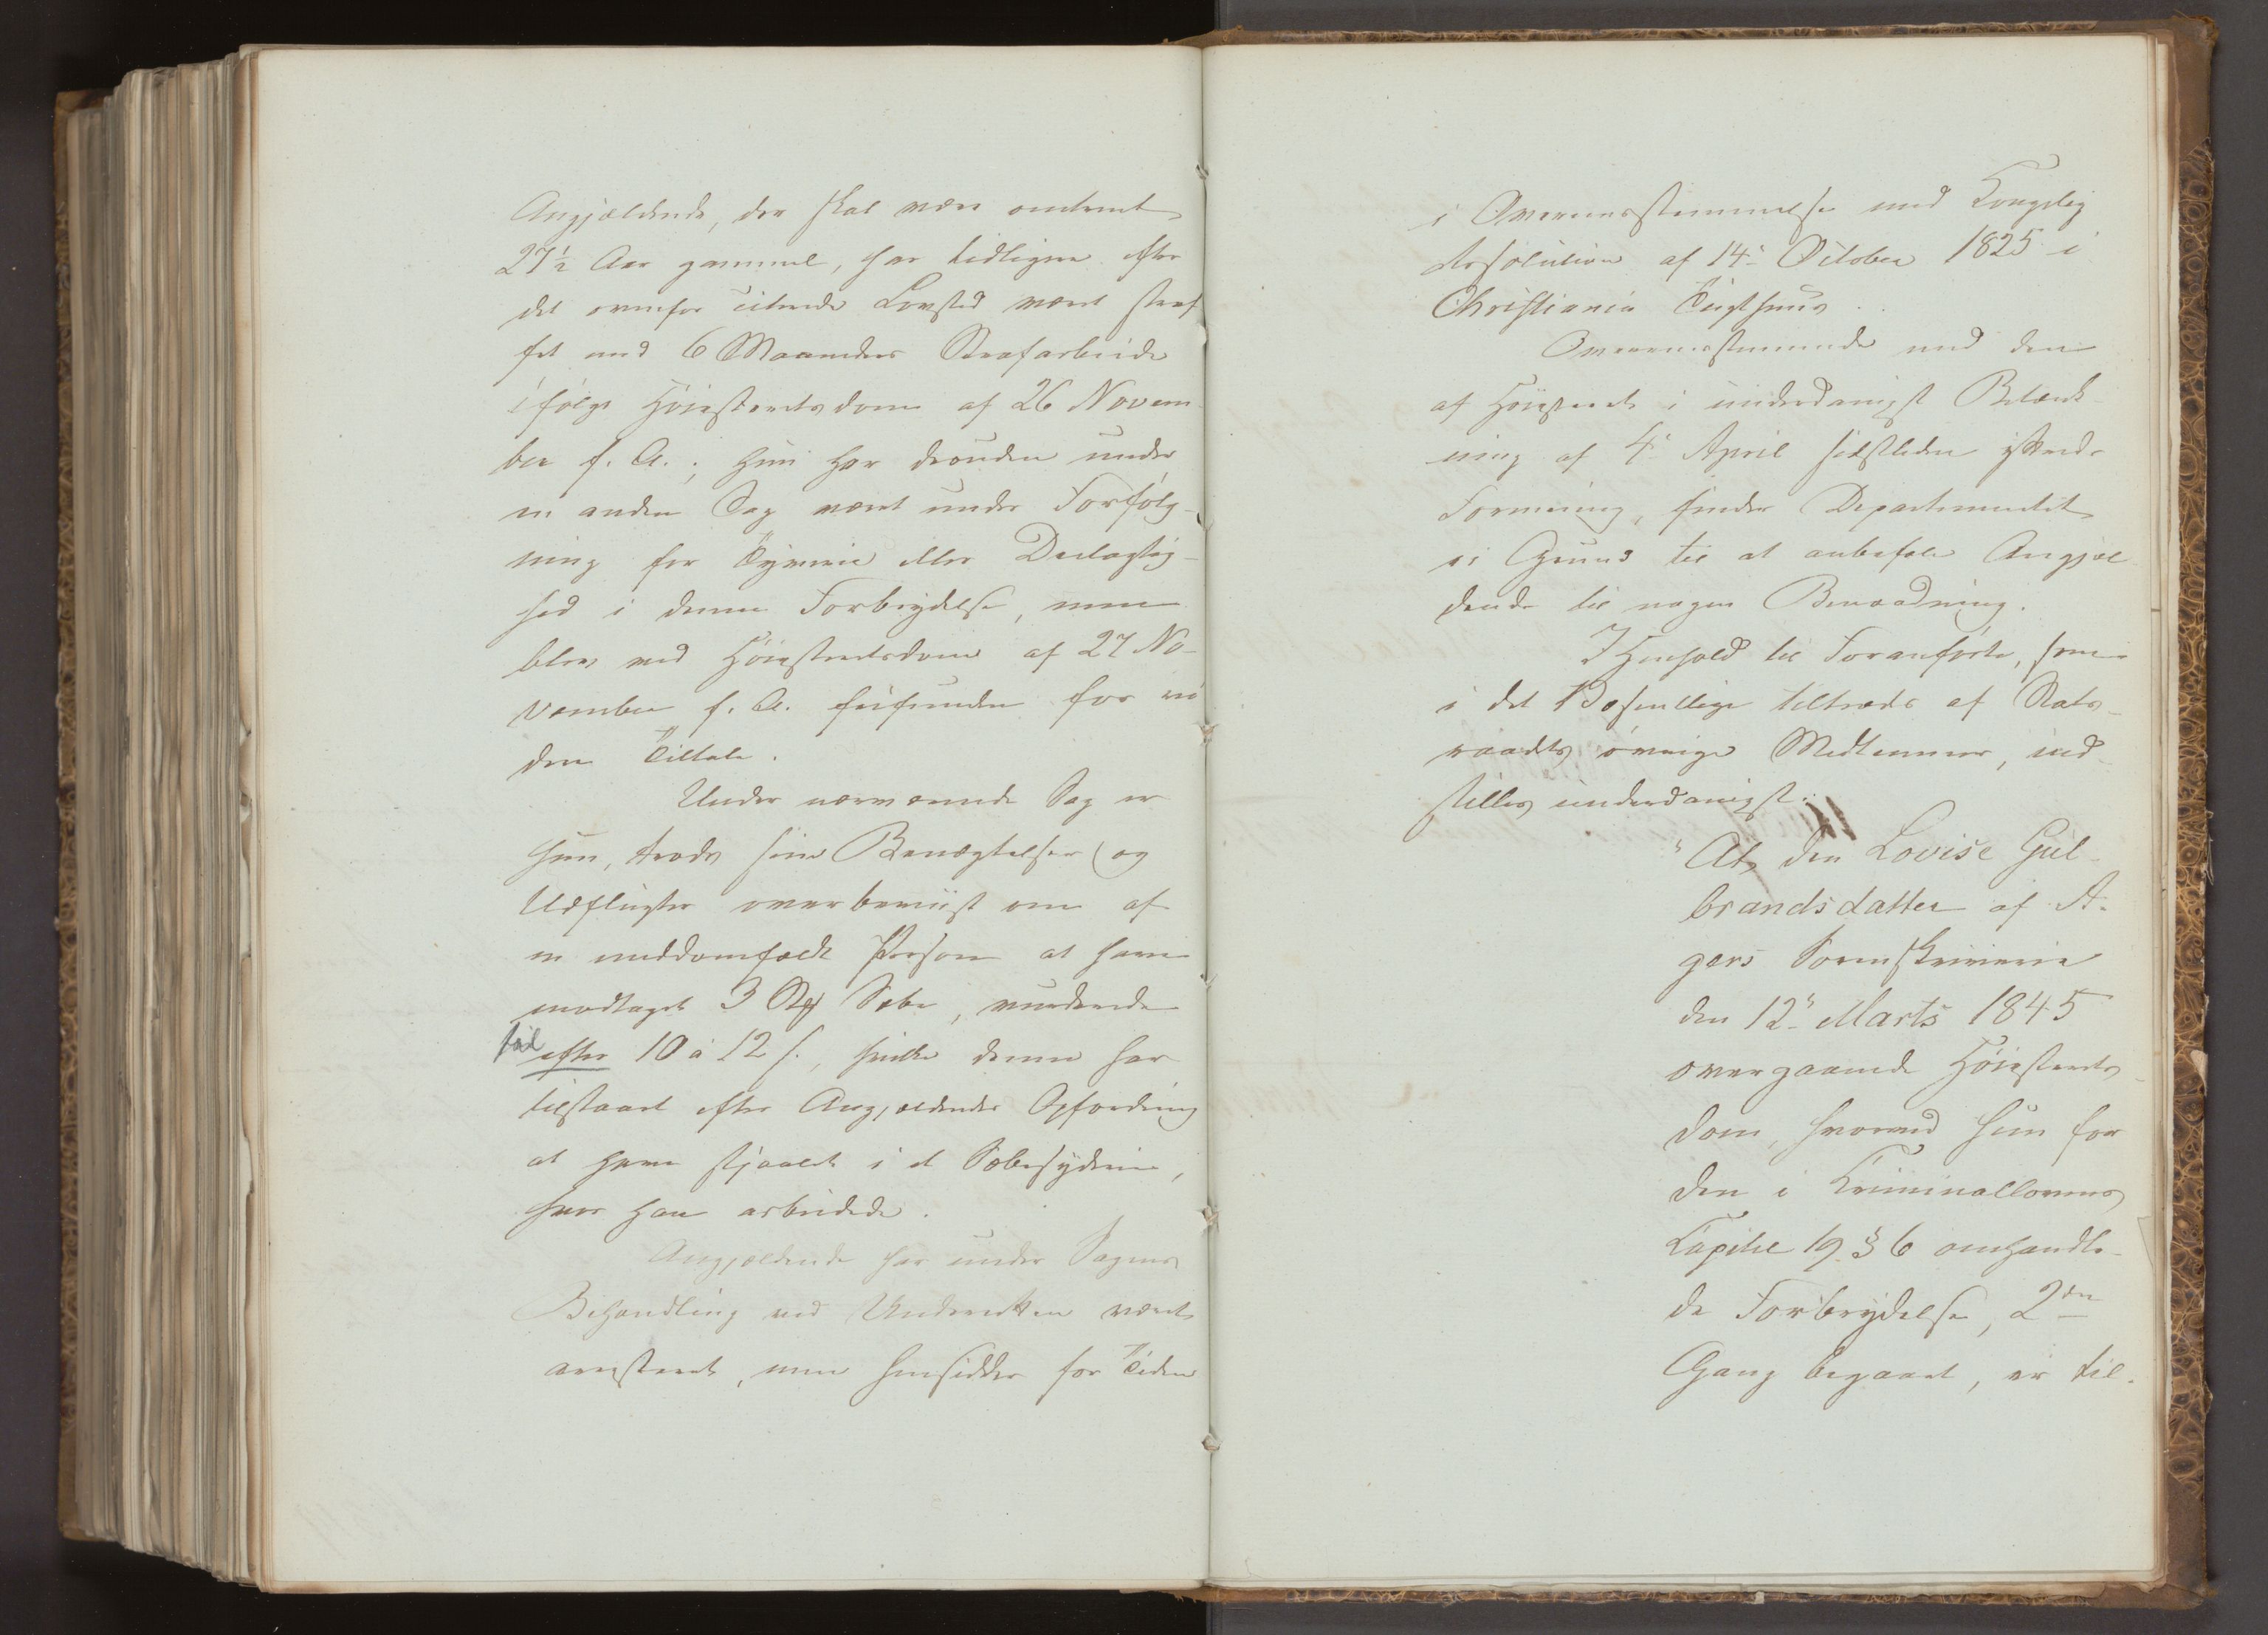 Angjældende, der skal være omtrent
27½ Aar gammel, har tidligere efter
det ovenfor citerede Lovsted været straf
fet med 6 Maaneders Strafarbeide
ifølge Høiesteretsdom af 26 Novem-
ber f. A.; hun har desuden under
en anden Sag været under Forfølg-
ning for Tyverie eller Deelagtig-
hed i denne Forbrydelse, men
blev ved Høiesteretsdom af 27 No-
vember f. A. frifunden for vi
dere Tiltale.
Under nærværende Sag er
hun, trods sine Benægtelser og
Udflugter overbeviist om af
en meddomfældt Person at have
modtaget 3 Stkr Sæbe, vurderede
tid
efter 10 à 12 s., hvilke denne har
tilstaaet efter Angjældendes Opfordring
at have stjaalet i et Sæbesyderie,
hvor han arbeidede.
Angjældende har under Sagens
Behandling ved Underretten været
arresteret, men hensidder for Tiden
i Overeensstemmelse med Kongelig
Resolution af 14de October 1825 i
Christiania Tugthuus.
Overeensstemmende med den
af Høiesteret i underdanigst Betænk-
ning af 4de April sidstleden yttrede
Formening, finder Departementet
ei Grund til at anbefale Angjæl
dende til nogen Benaadning.
I Henhold til Foranførte, som
i det Væsentlige tiltrædes af Stats-
raadets øvrige Medlemmer, ind-
stilles underdanigst:
"At den Lovise Gul-
brandsdatter af A-
gers Sorenskriverie
den 12te Marts 1845
overgaaende Høiesterets-
dom, hvorved hun for
den i Kriminallovens
Kapitel 19 § 6 omhandle-
de Forbrydelse, 2den
Gang begaaet, er til-